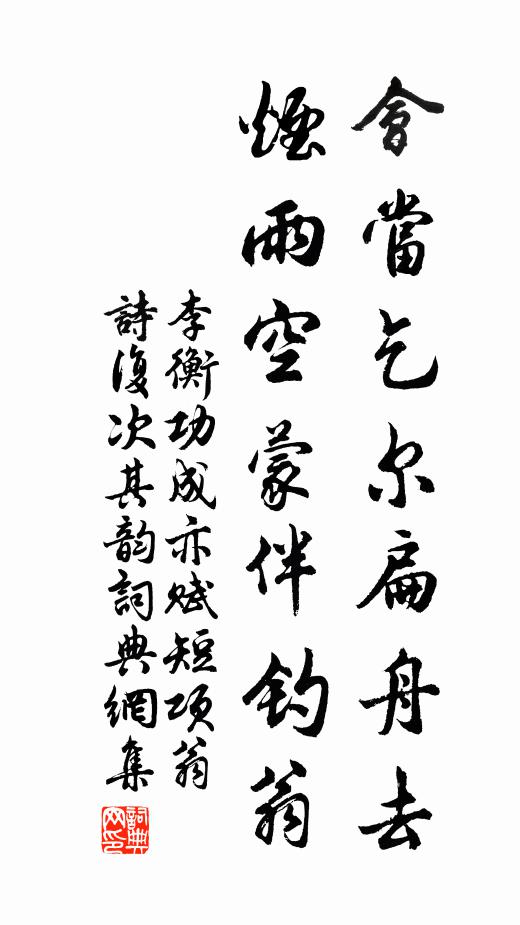 會當乞尔扁舟去
煙雨空蒙伴钓翁
李衡功成亦赋短项翁
詩復次其韵詞典網集
詞典网印